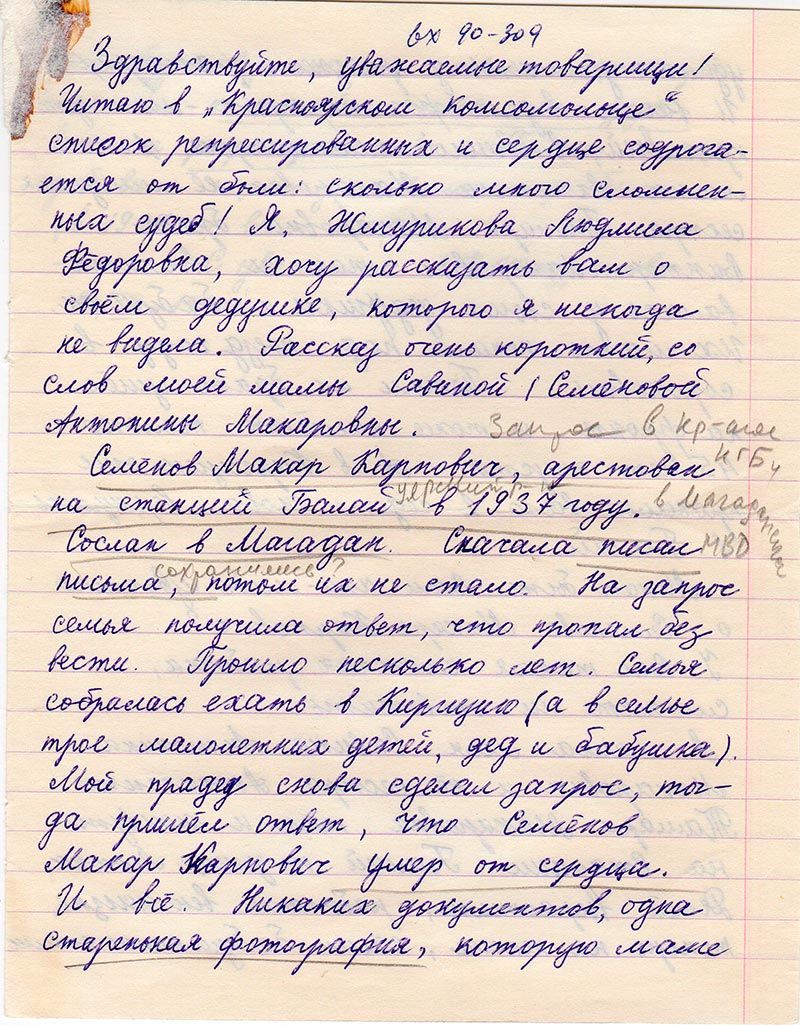 вх 90-309
Здравствуйте, уважаемые товарищи!
Читаю в „Красноярском комсомольце“
список репрессированных и сердце содрога-
ется от боли: сколько много сломлен-
ных судеб! Я, Жмурикова Людмила
Фёдоровна, хочу рассказать вам о
своём дедушке, которого я никогда
не видела. Рассказ очень короткий, со
слов моей мамы Савиной (Семёновой
Антонины Макаровны.
Запрос в Кр-ское
КГБ и
Семёнов Макар Карпович, арестован
на станций Балай в 1937 году.
в Магаданское
МВД
Сослан в Магадан. Сначала писал
сохранились?
письма, потом их не стало. На запрос
семья получила ответ, что пропал без
вести. Прошло несколько лет. Семья
собралась ехать в Киргизию (а в семье
трое малолетних детей, дед и бабушка).
Мой прадед снова сделал запрос, тог-
да пришёл ответ, что Семёнов
Макар Карпович умер от сердца.
И всё. Никаких документов, одна
старенькая фотография, которую маме